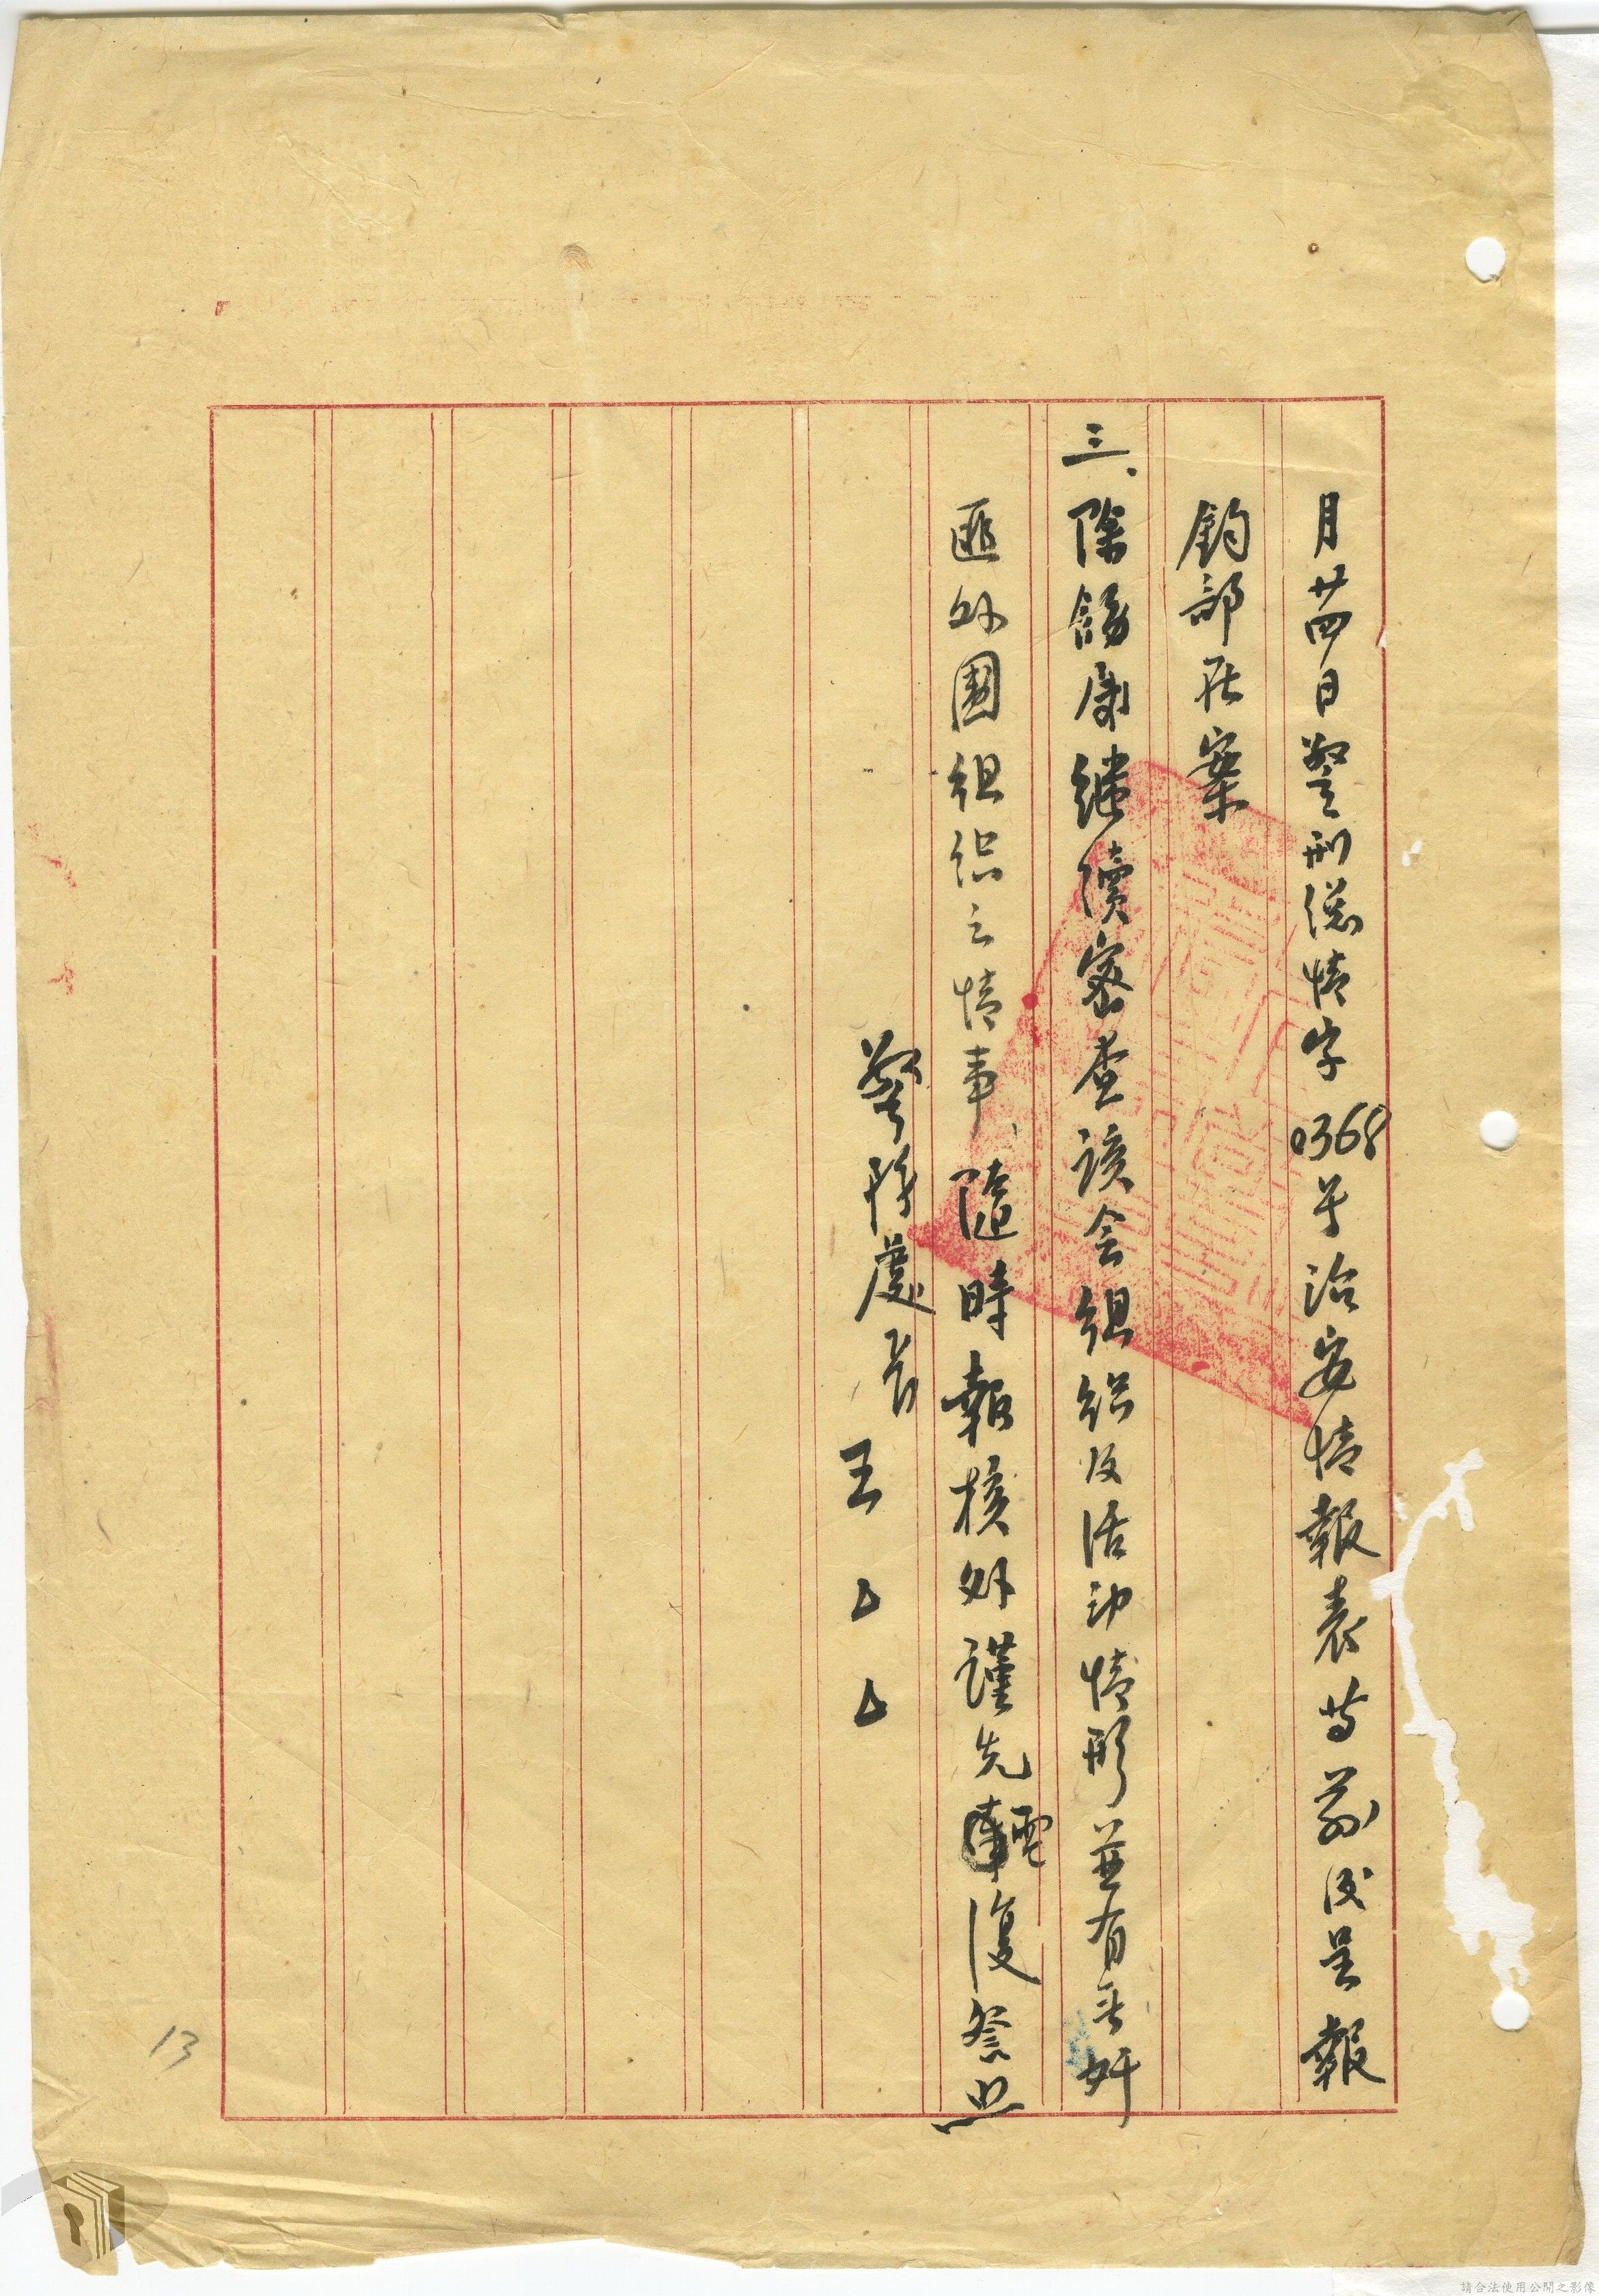 月廿四日警刑總情字0368號治安情報表等前後呈報
鈞部在案
三、除飭屬继續密查該会組织及活动情形並有無奸
匪外圍組织之情事、隨時報核外謹先電復祭照
警務處長王厶厶
13
請合法使用公開之影像